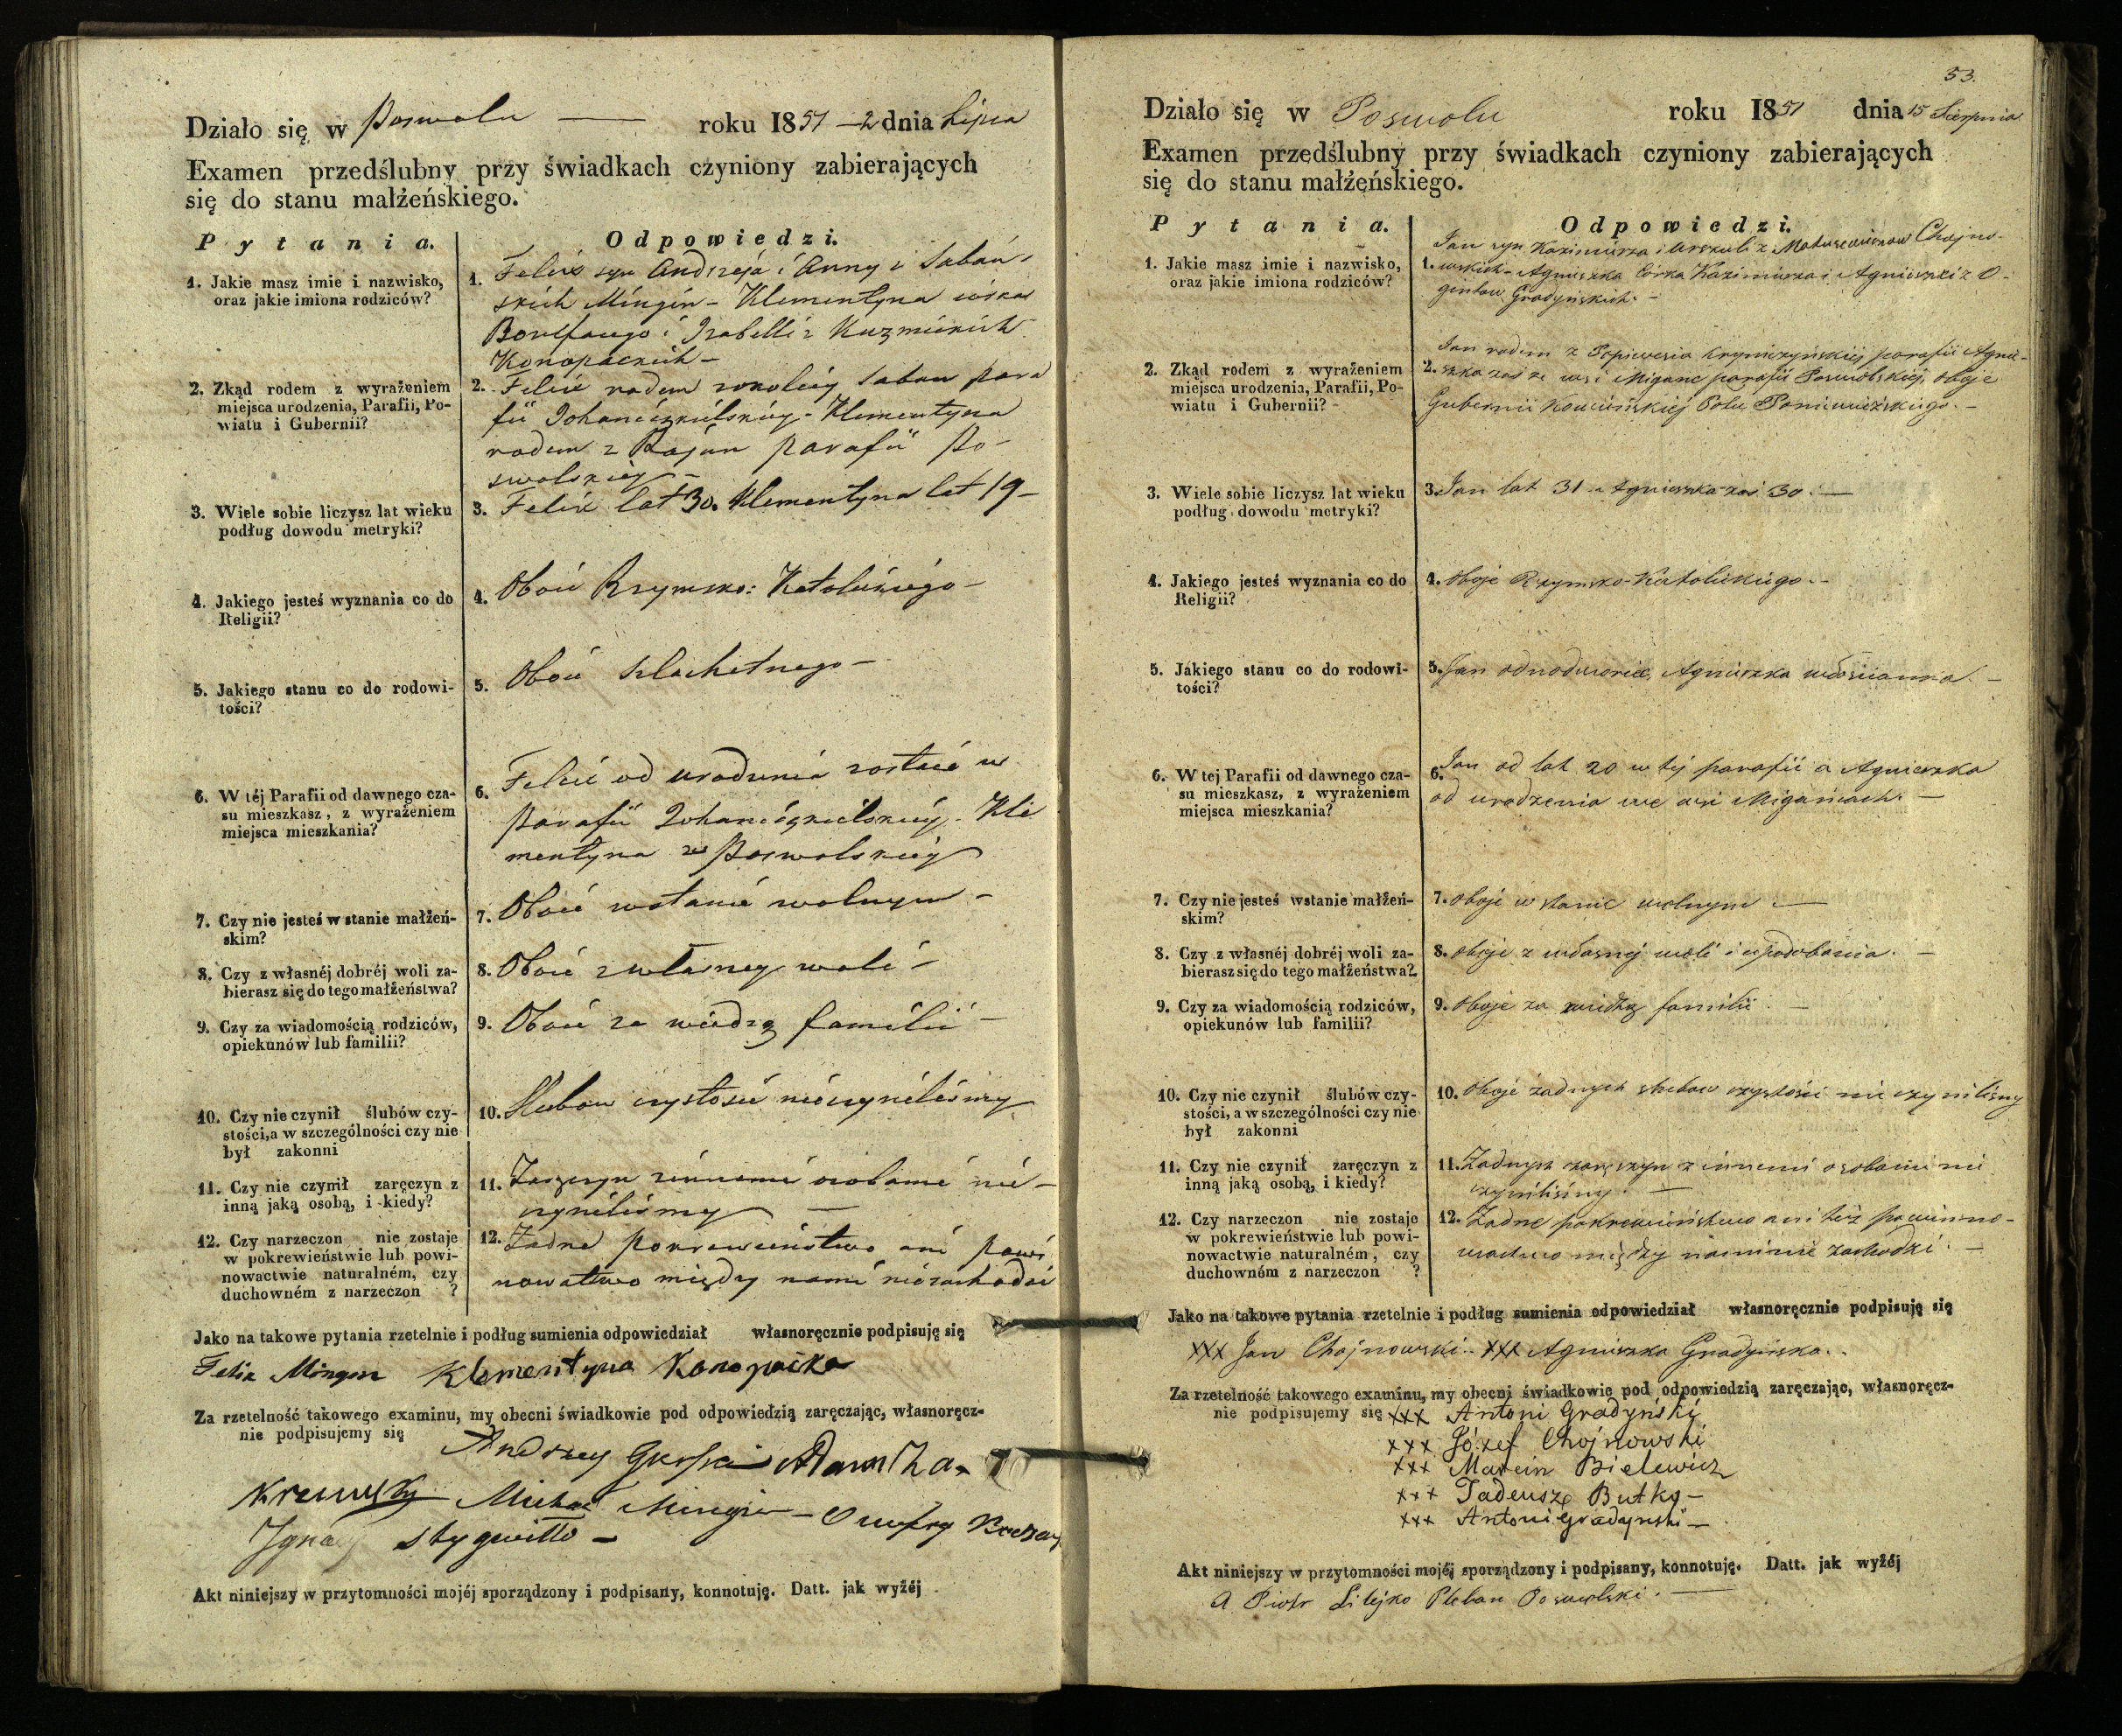 Działo się w Poswolu — roku 1851 – 2 dnia Lipca
Examen przedślubny przy świadkach czyniony zabierających
się do stanu małżeńskiego.
Pytania.
Odpowiedzi.
1. Jakie masz imie i nazwisko,
oraz jakie imiona rodziców?
1. Felix syn Andrzeja i Anny z Saban-
skich Mingin – Klementyna córka
Bonifacego i Izabelli z Kuzmickich
Konopackich –
2. Zkąd rodem z wyrażeniem
miejsca urodzenia, Parafii, Po-
wiatu i Gubernii?
2. Felix rodem zokolicy Saban para
fii Johaniszkielskiéy – Klementyna
rodem z Rajun parafii Po-
swolskiéy –
3. Wiele sobie liczysz lat wieku
podług dowodu metryki?
3. Felix lat 30. Klementyna lat 19 –
4. Jakiego jesteś wyznania co do
Religii?
4. Oboie Rzymsko: Katolickiego –
5. Jakiego stanu co do rodowi-
tości?
5. Oboie Szlachetnego –
6. W téj Parafii od dawnego cza-
su mieszkasz, z wyrażeniem
miejsca mieszkania?
6. Felix od urodzenia zostaie w
Parafii Johaniszkielskiéy. Kle
mentyna w Poswolskiéy
7. Czy nie jesteś w stanie małżeń-
skim?
7. Oboie wstanie wolnym –
8. Czy z własnéj dobréj woli za-
bierasz się do tego małżeństwa?
8. Oboie zwłasney woli –
9. Czy za wiadomością rodziców,
opiekunów lub familii?
9. Oboie za wiedzą familii –
10. Czy nie czynił ślubów czy-
stości, a w szczególności czy nie
był zakonni
10. Slubow czystości nieczyniliśmy
11. Czy nie czynił zaręczyn z
inną jaką osobą, i kiedy?
11. Zaręczyn zinnemi osobami nie-
czyniliśmy —
12. Czy narzeczon nie zostaje
w pokrewieństwie lub powi-
nowactwie naturalném, czy
duchowném z narzeczon ?
12. Żadne pokrewieństwo ani powi
nowatwo między nami niezachodzi
Jako na takowe pytania rzetelnie i podług sumienia odpowiedział własnoręcznie podpisuję się
Felix Mingin Klementyna Konopacka
Za rzetelność takowego examinu, my obecni świadkowie pod odpowiedzią zaręczając, własnoręcz-
nie podpisujemy się
Andrzey Adam
Michał Mingin – Onufry
Ignacy Stygwiłło –
Akt niniejszy w przytomności mojéj sporządzony i podpisany, konnotuję. Datt. jak wyżéj
53.
Działo się w Poswolu roku 1851 dnia 15 Sierpnia
Examen przedślubny przy świadkach czyniony zabierających
się do stanu małżeńskiego.
Pytania.
Odpowiedzi.
1. Jakie masz imie i nazwisko,
oraz jakie imiona rodziców?
1. Jan syn Kazimierza i Urszuli z Matusewiczow Chojno-
wskich – Agnieszka Córka Kazimierza i Agnieszki z O-
gintow Gradyńskich. –
2. Zkąd rodem z wyrażeniem
miejsca urodzenia, Parafii, Po-
wiatu i Gubernii?
2. Jan rodem z Popiewesia Kryniczyńskiéj parafii Agnie-
szka zaś ze wsi Migańc parafii Poswolskiéj, oboje
Gubernii Kowieńskiéj Potu Poniewieżskiego. –
3. Wiele sobie liczysz lat wieku
podług dowodu metryki?
3. Jan lat 31 a Agnieszka zaś 30. —
4. Jakiego jesteś wyznania co do
Religii?
4. Oboje Rzymsko-Katolickiego. –
5. Jakiego stanu co do rodowi-
tości?
5. Jan odnodworiec, Agnieszka włościanka. –
6. W tej Parafii od dawnego cza-
su mieszkasz, z wyrażeniem
miejsca mieszkania?
6. Jan od lat 20 w téj parafii a Agnieszka
od urodzenia we wsi Migańcach. –
7. Czy nie jesteś wstanie małżeń-
skim?
7. Oboje w stanie wolnym. —
8. Czy z własnéj dobréj woli za-
bierasz się do tego małżeństwa?
8. Oboje z własnéj woli i upodobania. –
9. Czy za wiadomością rodziców,
opiekunów lub familii?
9. Oboje za wiedzą familii. –
10. Czy nie czynił ślubów czy-
stości, a w szczególności czy nie
był zakonni
10. Oboje żadnych slubow czystości nie czynilismy
11. Czy nie czynił zaręczyn z
inną jaką osobą, i kiedy?
11. Żadnych zaręczyn z innemi osobami nie
czynilismy. —
12. Czy narzeczon nie zostaje
w pokrewieństwie lub powi-
nowactwie naturalném, czy
duchowném z narzeczon ?
12. Żadne pokrewieństwo ani też powinno-
wactwo między nami nie zachodzi. –
Jako na takowe pytania rzetelnie i podług sumienia odpowiedział własnoręcznie podpisuję się
XXX Jan Chojnowski.. XXX Agnieszka Gradyńska..
Za rzetelność takowego examinu, my obecni świadkowie pod odpowiedzią zaręczając, własnoręcz-
nie podpisujemy się xxx Antoni Gradyński
xxx Józef Chojnowski
xxx Marcin Bielewicz
xxx Tadeusz Butko –
xxx Antoni Gradyński –
Akt niniejszy w przytomności mojéj sporządzony i podpisany, konnotuję. Datt. jak wyżéj
X Piotr Lilejko Pleban Poswolski. —